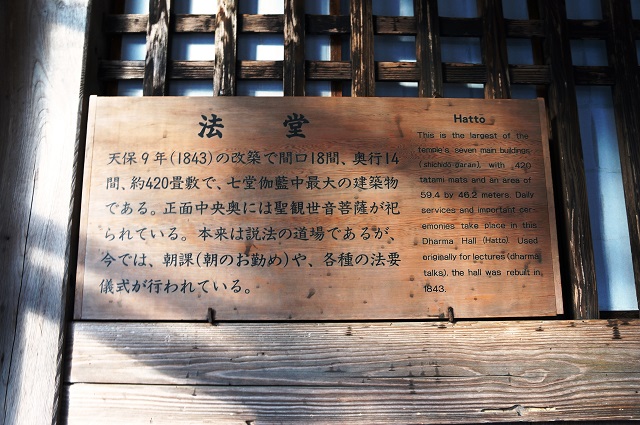 法堂
天保9年(1843)の改築で間口18間、奥行14
間、約420畳敷で、七堂伽藍中最大の建築物
である。正面中央奥には聖観世音菩薩が祀
られている。本来は説法の道場であるが、
今では、朝課(朝のお勤め)や、各種の法要
儀式が行われている。
Hattō
This is the largest of the
temple's seven main buildings,
(shichidō garan), with 420
tatami mats and an area of
59.4 by 46.2 meters. Daily
services and important cer-
emonies take place in this
Dharma Hall (Hattō). Used
originally for lectures (dharma
talks), the hall was rebuilt in
1843.